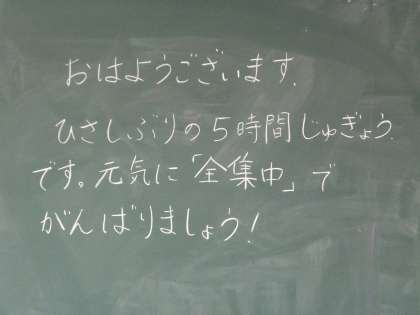 おはようございます.
ひさしぶりの5時間じゅぎょう
です。元気に「全集中」で
がんばりましょう!